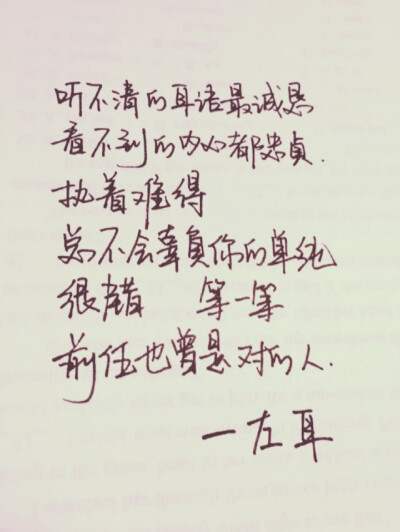 听不清的耳语最诚恳
看不到的内心都忠貞.
执着难得
总不会辜負你的单纯
很难 等一等
前任也曾是对的人.
一左耳